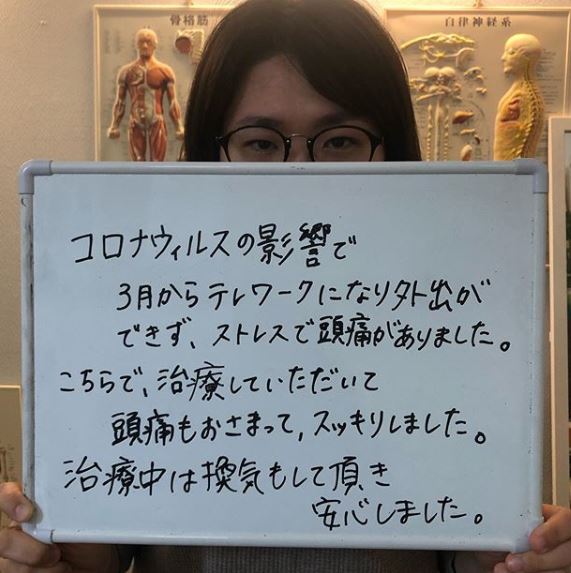 骨格筋
自律神経系
コロナウィルスの影響で
3月からテレワークになり外出が
できず、ストレスで頭痛がありました。
こちらで、治療していただいて
頭痛もおさまって、スッキリしました。
治療中は換気もして頂き
安心しました。